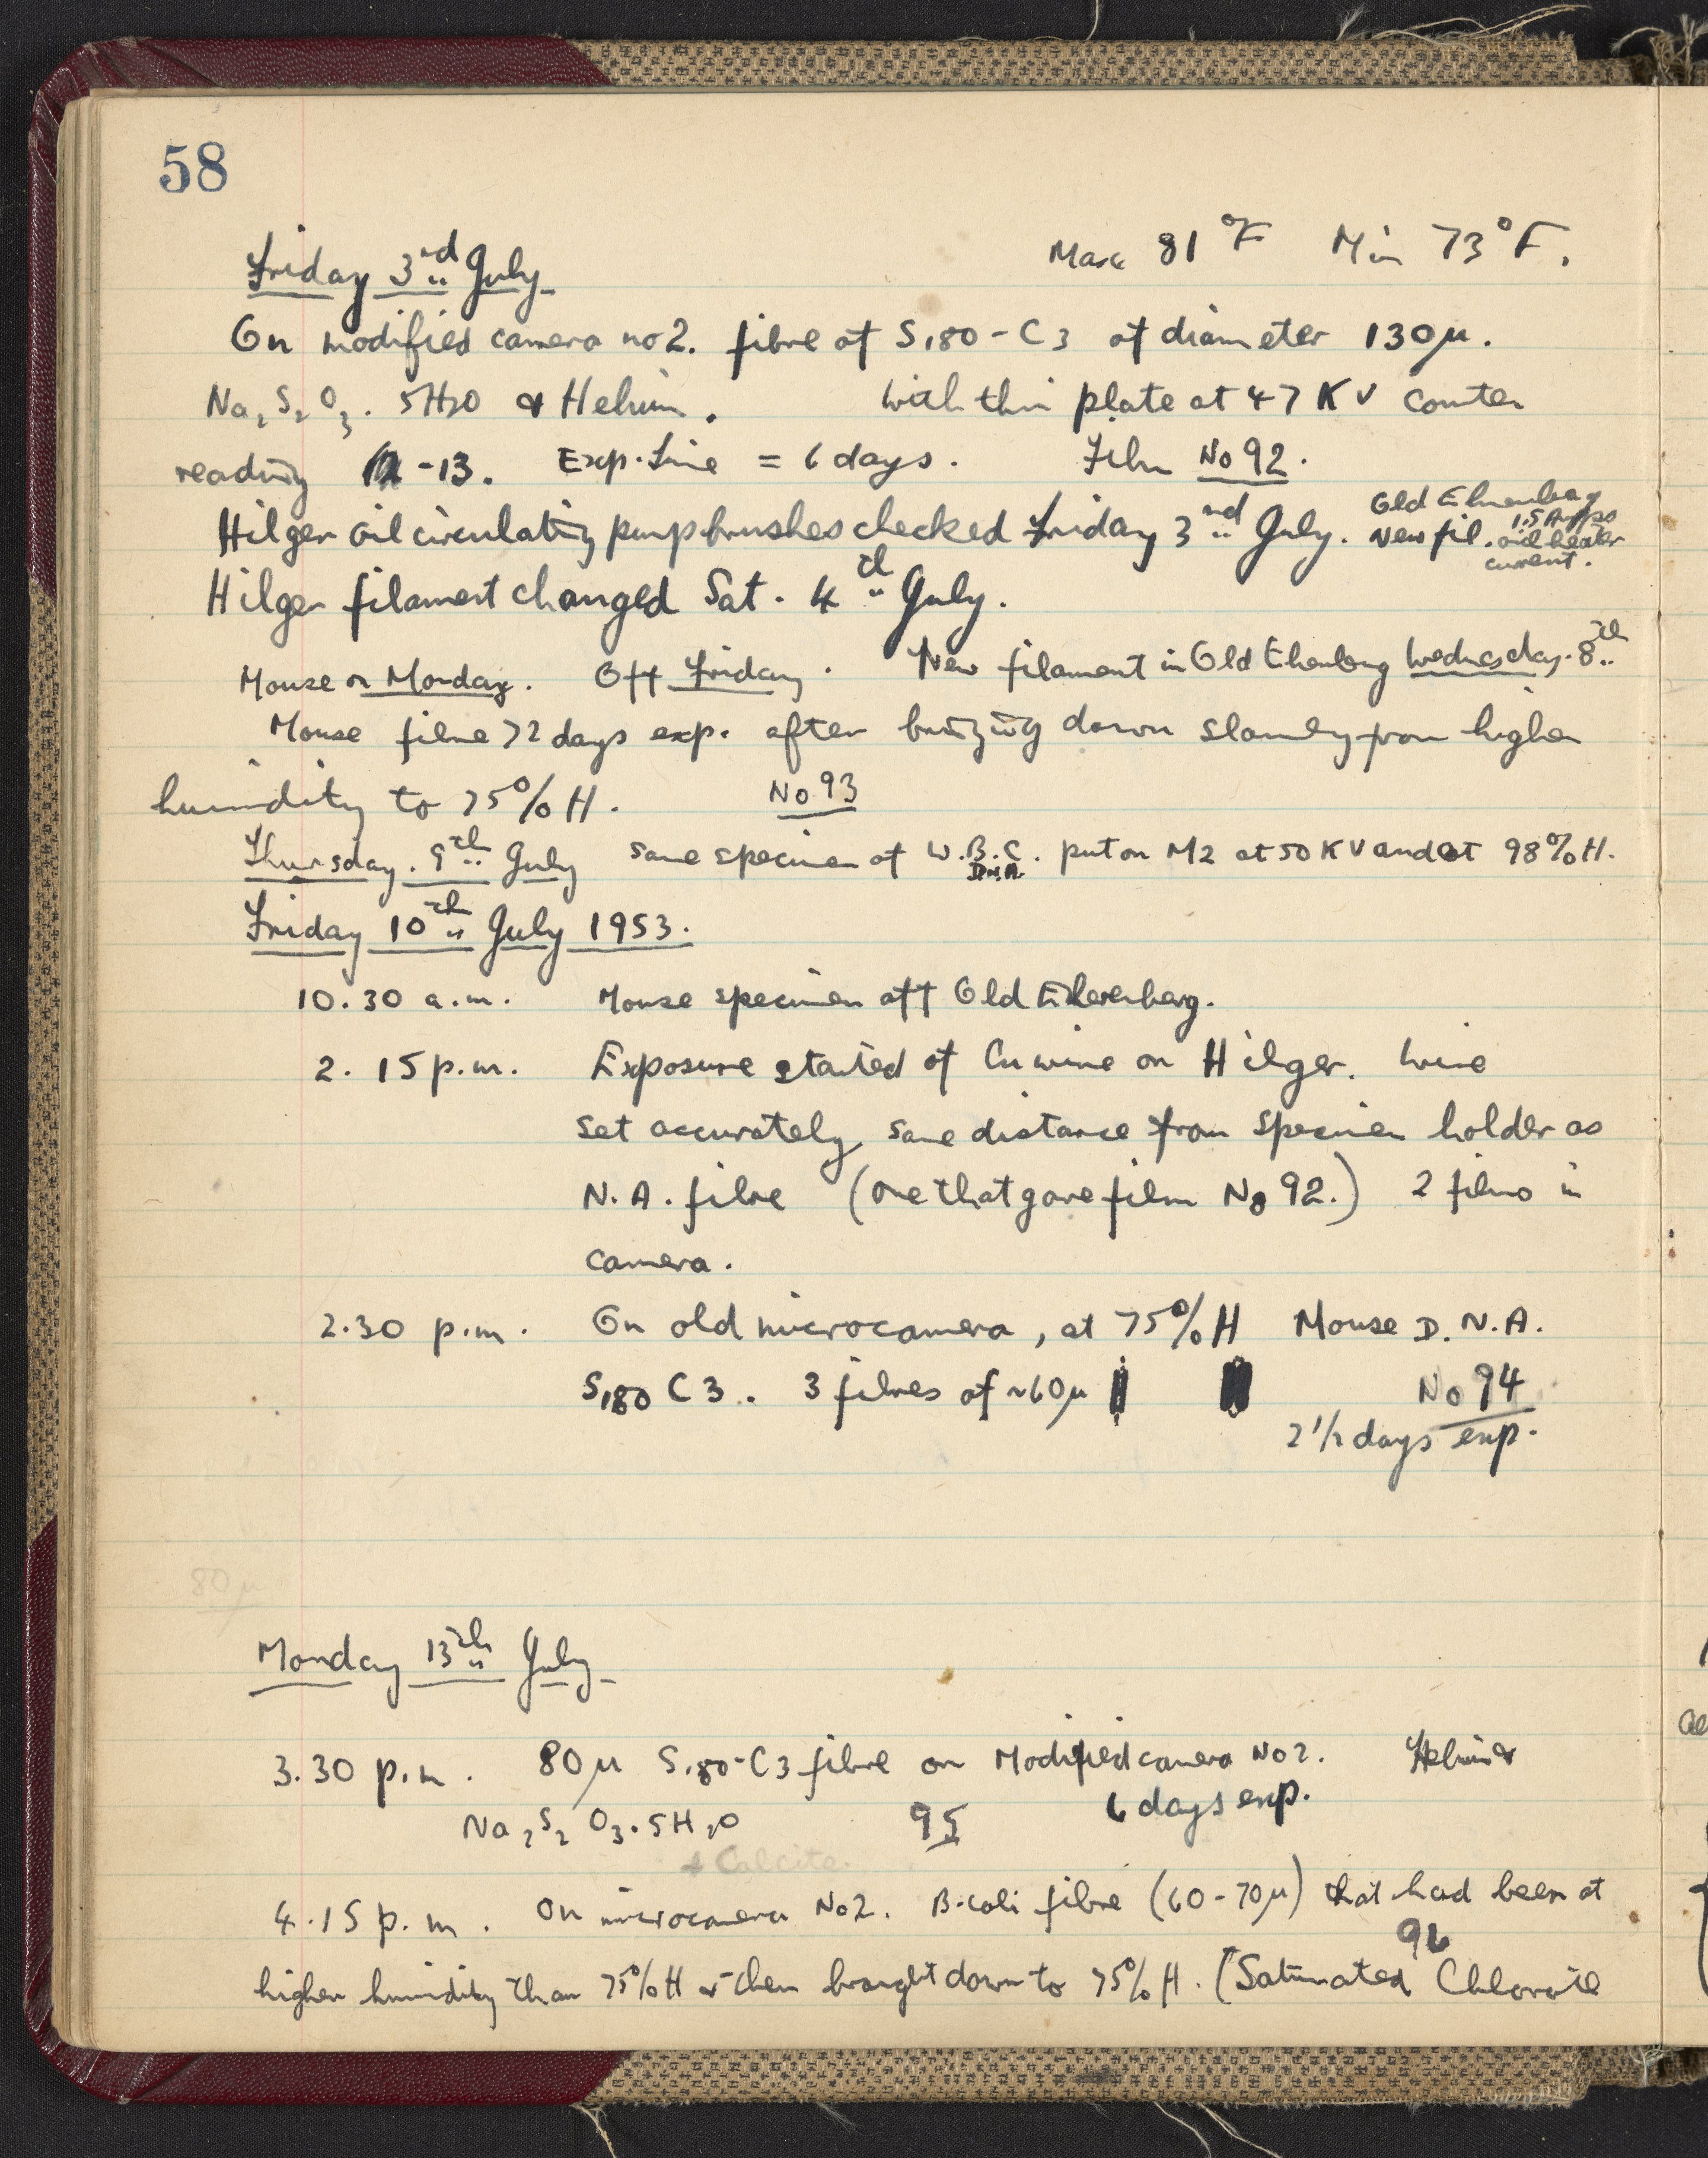 58
Max 81°F Min 73°F.
Friday 3rd July
On modified camera no 2. fibre of S180-C3 of diameter 130μ.
Na2S2O3. 5H2O & Helium. with thin plate at 47 KV counter
reading -13. Exp. time = 6 days. Film No 92.
Hilger oil circulating pump brushes checked Friday 3rd July. Old Ehrenberg
New fil. 1.5 Amps
oil heater
current.
Hilger filament changed Sat. 4th July.
Mouse on Monday. Off Friday. New filament in Old Ehrenberg Wednesday. 8th
Mouse fibre 72 days exp. after bringing down slowly from higher
humidity to 75% H. No 93
Thursday. 9th July same specimen of W.B.C. put on M2 at 50 KV and at 98% H.
D.N.A.
Friday 10th July 1953.
10.30 a.m. Mouse specimen off Old Ehrenberg.
2.15 p.m. Exposure started of Cu wire on Hilger. Wire
set accurately same distance from specimen holder as
N.A. fibre (one that gave film No 92.) 2 films in
camera.
2.30 p.m. On old microcamera, at 75% H Mouse D.N.A.
S180 C3. 3 fibres of ~60μ No 94
2 1/2 days exp.
80μ
Monday 13th July
3.30 p.m. 80μ S180-C3 fibre on Modified camera No 2. Helium &
Na2S2O3.5H2O 95 6 days exp.
& Calcite.
4.15 p.m. On microcamera No 2. B.coli fibre (60-70μ) that had been at
96
higher humidity than 75% H & then brought down to 75% H. (Saturated Chlorate